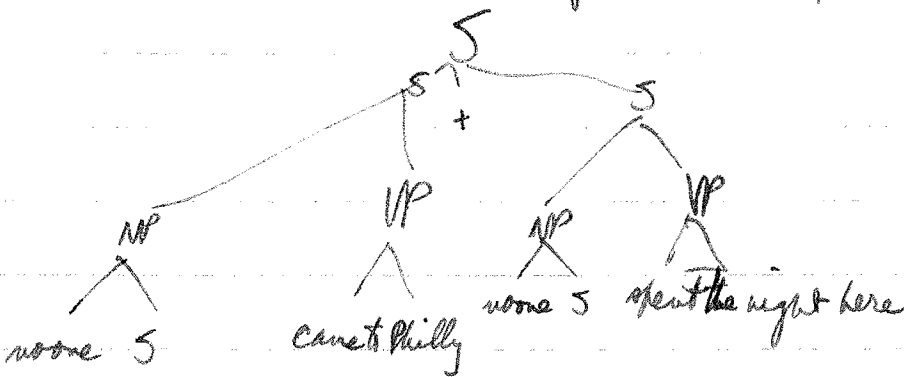 S
S + S
NP VP NP VP
noone S came to Philly noone S spent the night here